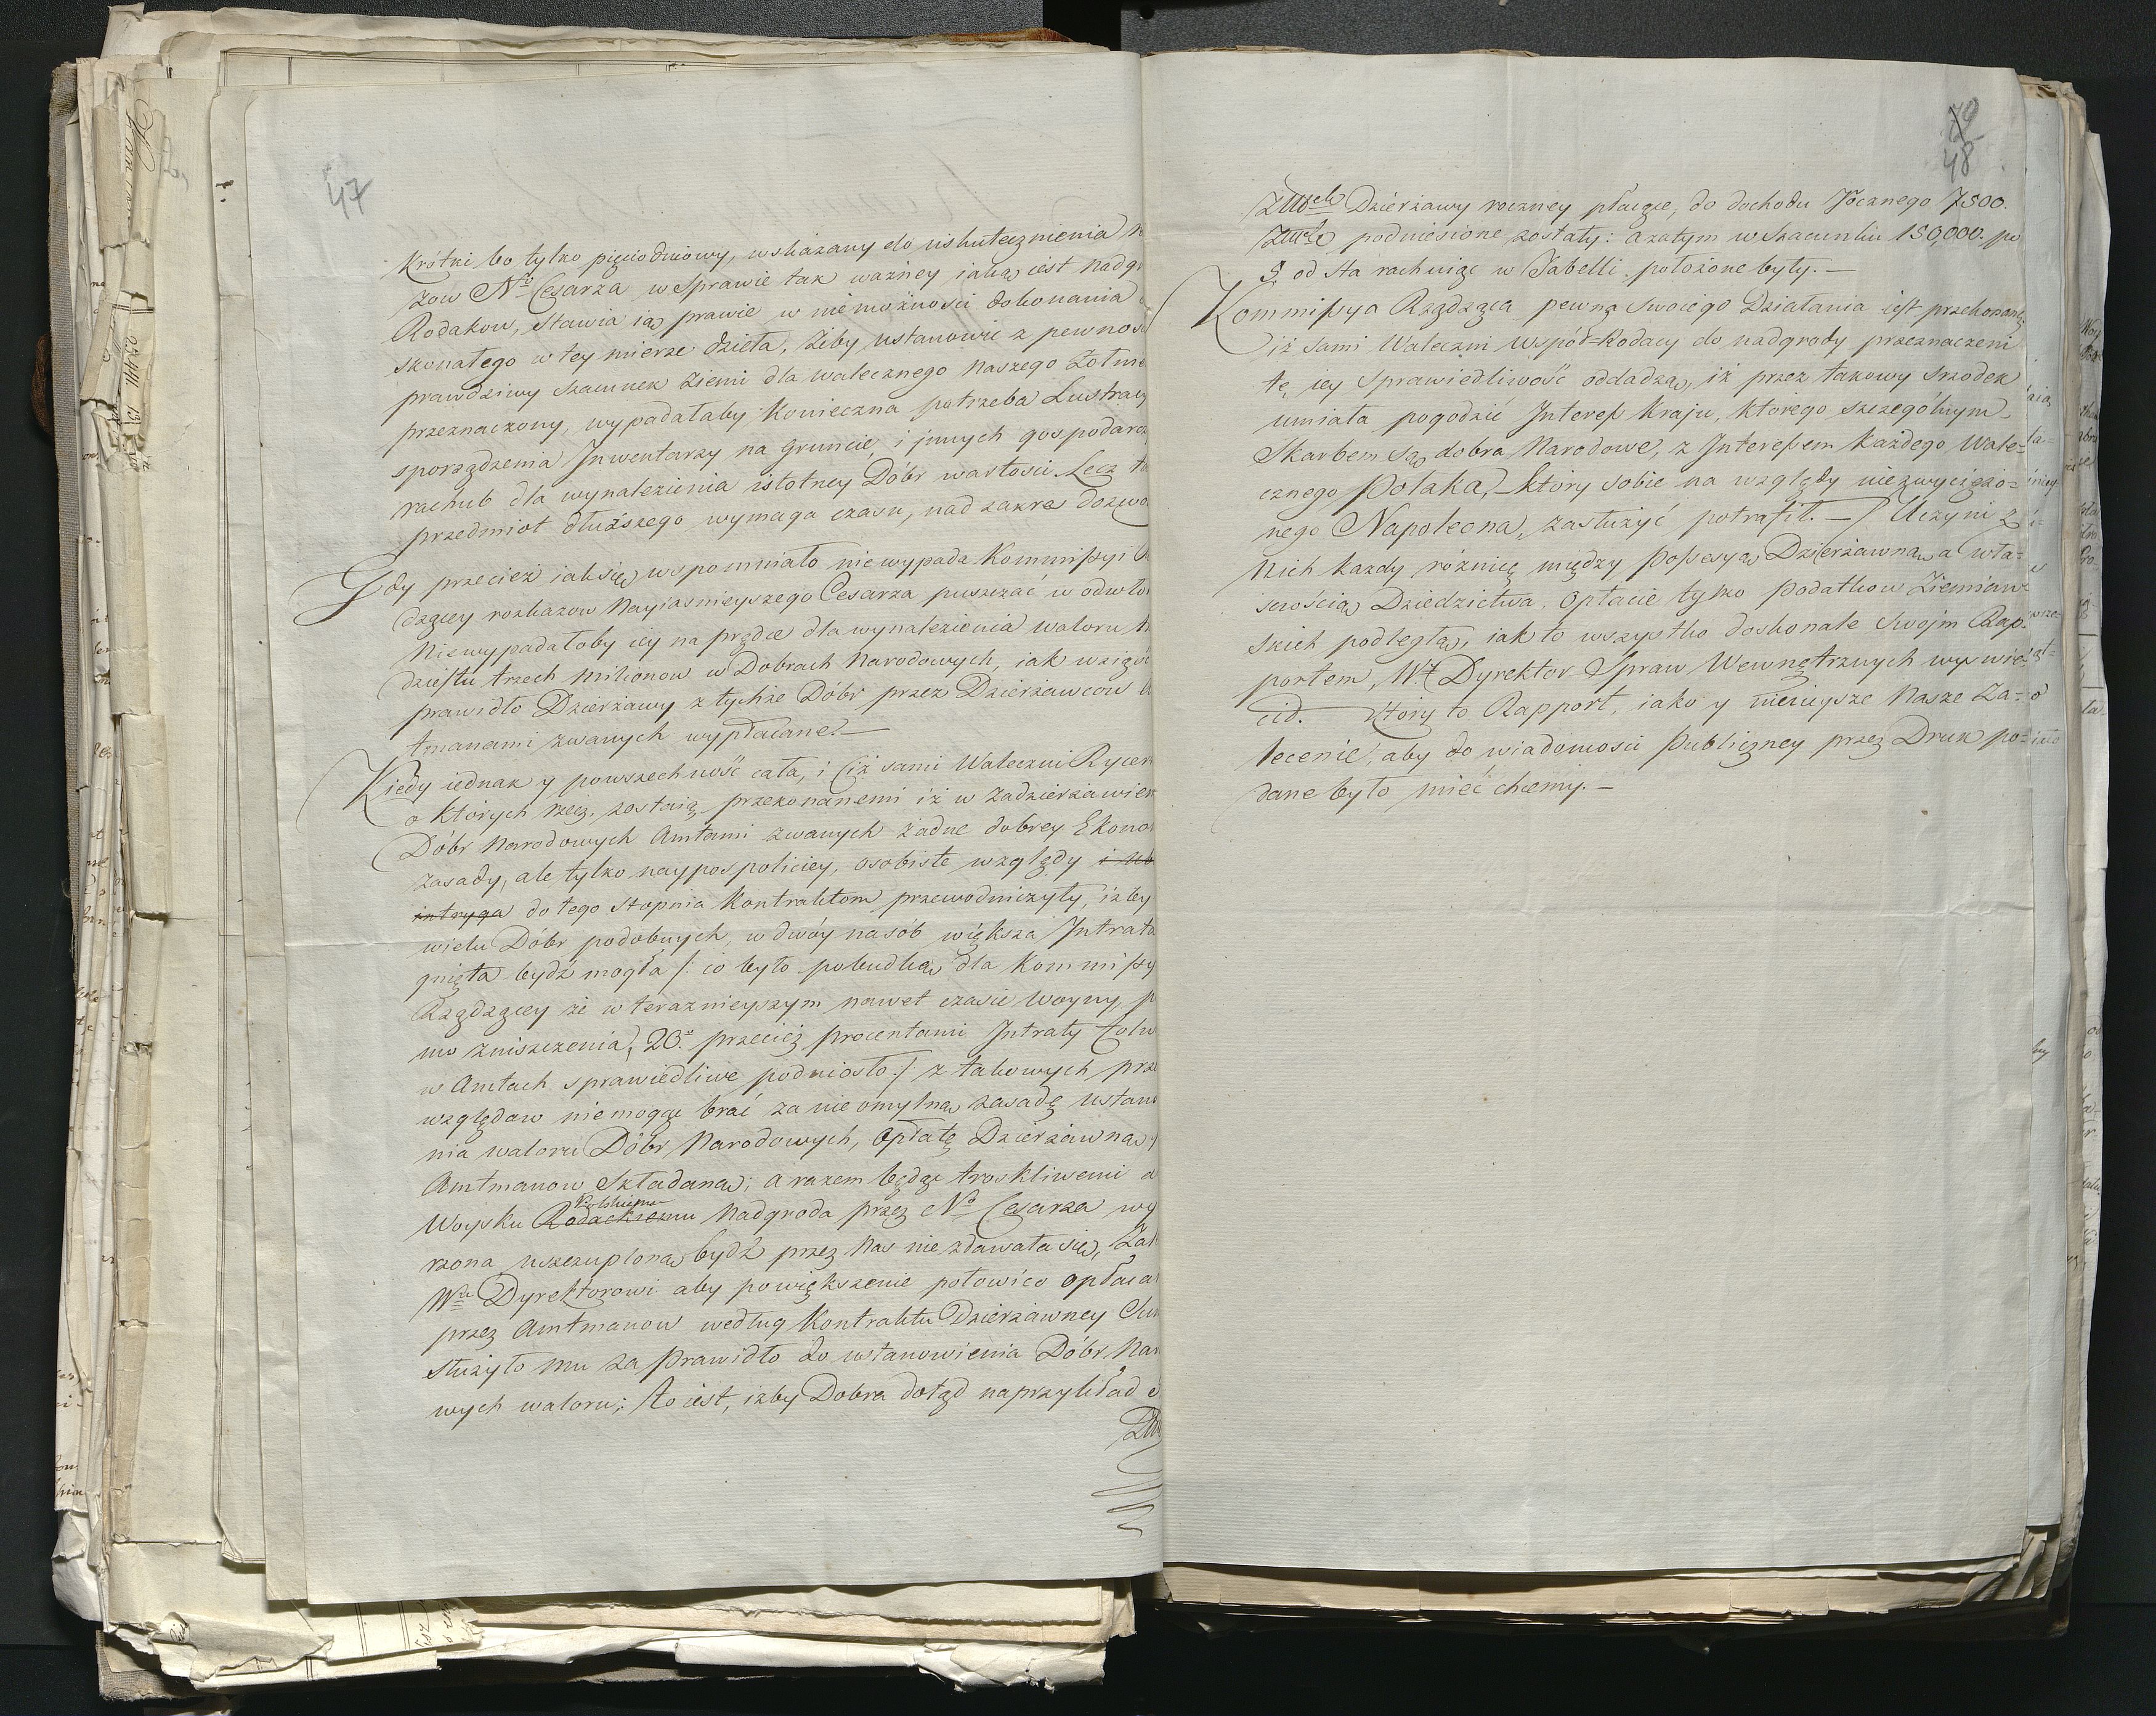 47
Krótki bo tylko pięciodniowy, wskazany do uskutecznienia
zow No Cesarza w Sprawie tak ważney iaką iest nadgr
Rodakow, stawia ią prawie w niemożności dokonania
skonałego w tey mierze dzieła. Żeby ustanowić z pewnośc
prawdziwy szacunek Ziemi dla walecznego naszego Żołnie
przeznaczony, wypadałaby konieczna potrzeba Lustracy
sporządzenia Inwentarzy na gruncie, i innych gospodarcz
rachub dla wynalezienia istotney Dóbr wartości. Lecz ta
przedmiot dłuższego wymaga czasu, nad zakres dozwo
Gdy przecież iak się wspomniało nie wypada Kommissyi
dzącey rozkazow Nayiasnieyszego Cesarza puszczać w odwło
Nie wypadałoby iey na prędce dla wynalezienia waloru
dziestu trzech Milionow w Dobrach Narodowych, iak wziąść
prawidło Dzierżawy z tychże Dóbr przez Dzierżawcow A
tmanami zwanych wypłacane. —
Kiedy iednak y powszechność cała, i iż sami Waleczni Rycer
o których rzecz, zostaią przekonanemi iż w Zadzierżawien
Dóbr Narodowych Amtami zwanych żadne dobrey Ekono
zasady, ale tylko naypospoliciey, osobiste względy i
intryga do tego stopnia kontraktom przewodniczyły, iżby
wielu Dóbr podobnych, w dwóy nasób większa Intrata
gnięta bydź mogła /: co było pobudką dla Kommissy
Rządzącey że w teraznieyszym nawet czasie Woyny, p
mo zniszczenia, 20 przecież procentami Intraty
w Amtach sprawiedliwe podniosło :/ z takowych prze
względow nie mogąc brać za nie omylną zasadę ustano
nia waloru Dóbr Narodowych, Opłatę Dzierżawną
Amtmanow składaną; a razem będąc troskliwemi a
Polskiemu
Woysku Rodackiemu Nadgroda przez No Cesarza wy
rzona uszczuploną bydź przez Nas nie zdawała się, Zal
Wu Dyrektorowi aby powiększenie połowico opłaca
przez Amtmanow według Kontraktu Dzierżawney Su
służyło mu za prawidło do ustanowienia Dóbr Nar
wych waloru; to iest, iżby Dobra dotąd naprzykład
70
48
Dzierżawy roczney płacące, do dochodu Rocznego 7500.
podniesione zostały: a zatym w Szacunku 150,000. po
5 od sta rachuiąc w Tabelli położone były. —
Kommissya Rządząca pewną swoiego Działania iest przekonaną
iż sami Waleczni Współ-Rodacy do nadgrody przeznaczeni
tę iey sprawiedliwość oddadzą, iż przez takowy srzodek
umiała pogodzić Interess kraju, którego szczególnym
Skarbem są dobra Narodowe, z Interessem każdego Wale=
cznego Polaka, który sobie na względy niezwyciężo=
nego Napoleona, zasłużyć potrafił. — Uczyni z
Nich każdy różnicę między Possesyą Dzierżawną, a wła=
snością Dziedzictwa, Opłacie tylko Podatkow Ziemiań=
skich podległą, iak to wszystko doskonale Swoim Rap=
portem, W. Dyrektor Spraw Wewnętrznych wyswie=
cił. Ktory to Rapport, iako y ninieysze Nasze Za=
lecenie, aby do wiadomości publiczney przez Druk po=
dane było mieć chcemy. —